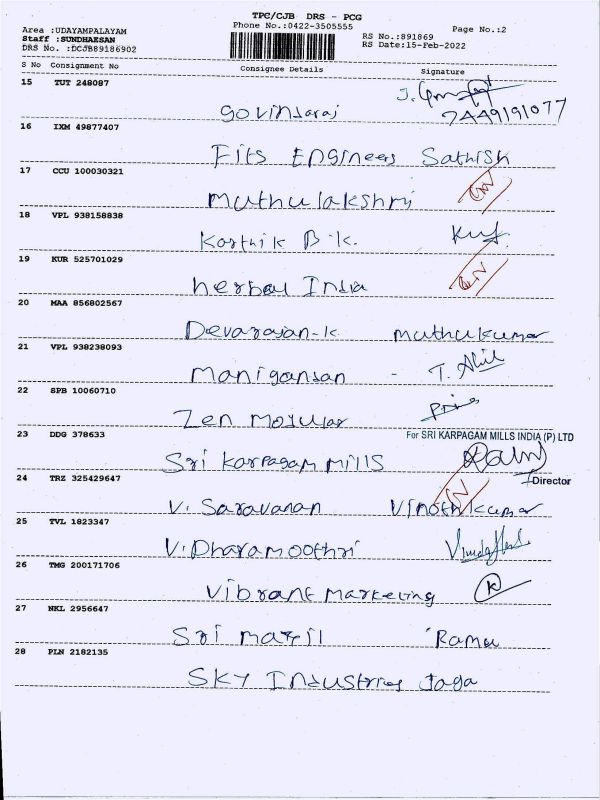 TPC/CJB DRS - PCG
Area :UDAYAMPALAYAM Phone No.:0422-3505555 Page No.:2
Staff :SUNDHAESAN RS No.:891869
DRS No. :DCJB89186902 RS Date:15-Feb-2022
S No Consignment No Consignee Details Signature
15 TUT 248087
Govindaraj 7449191077
16 IXM 49877407
Fits Engineers Sathish
17 CCU 100030321
Muthulakshmi
18 VPL 938158838
Karthik B.k.
19 KUR 525701029
herbal India
20 MAA 856802567
Devarajan-k muthukumar
21 VPL 938238093
Manigandan - T.
22 SPB 10060710
Zen Modular
23 DDG 378633 For SRI KARPAGAM MILLS INDIA (P) LTD
Sri karpagam mills
24 TRZ 325429647 Director
V. Saravanan Vinothkumar
25 TVL 1823347
V. Dharamoothri
26 TMG 200171706
Vibrant marketing
27 NKL 2956647
Sri Ramu
28 PLN 2182135
Sky Industries Jaga